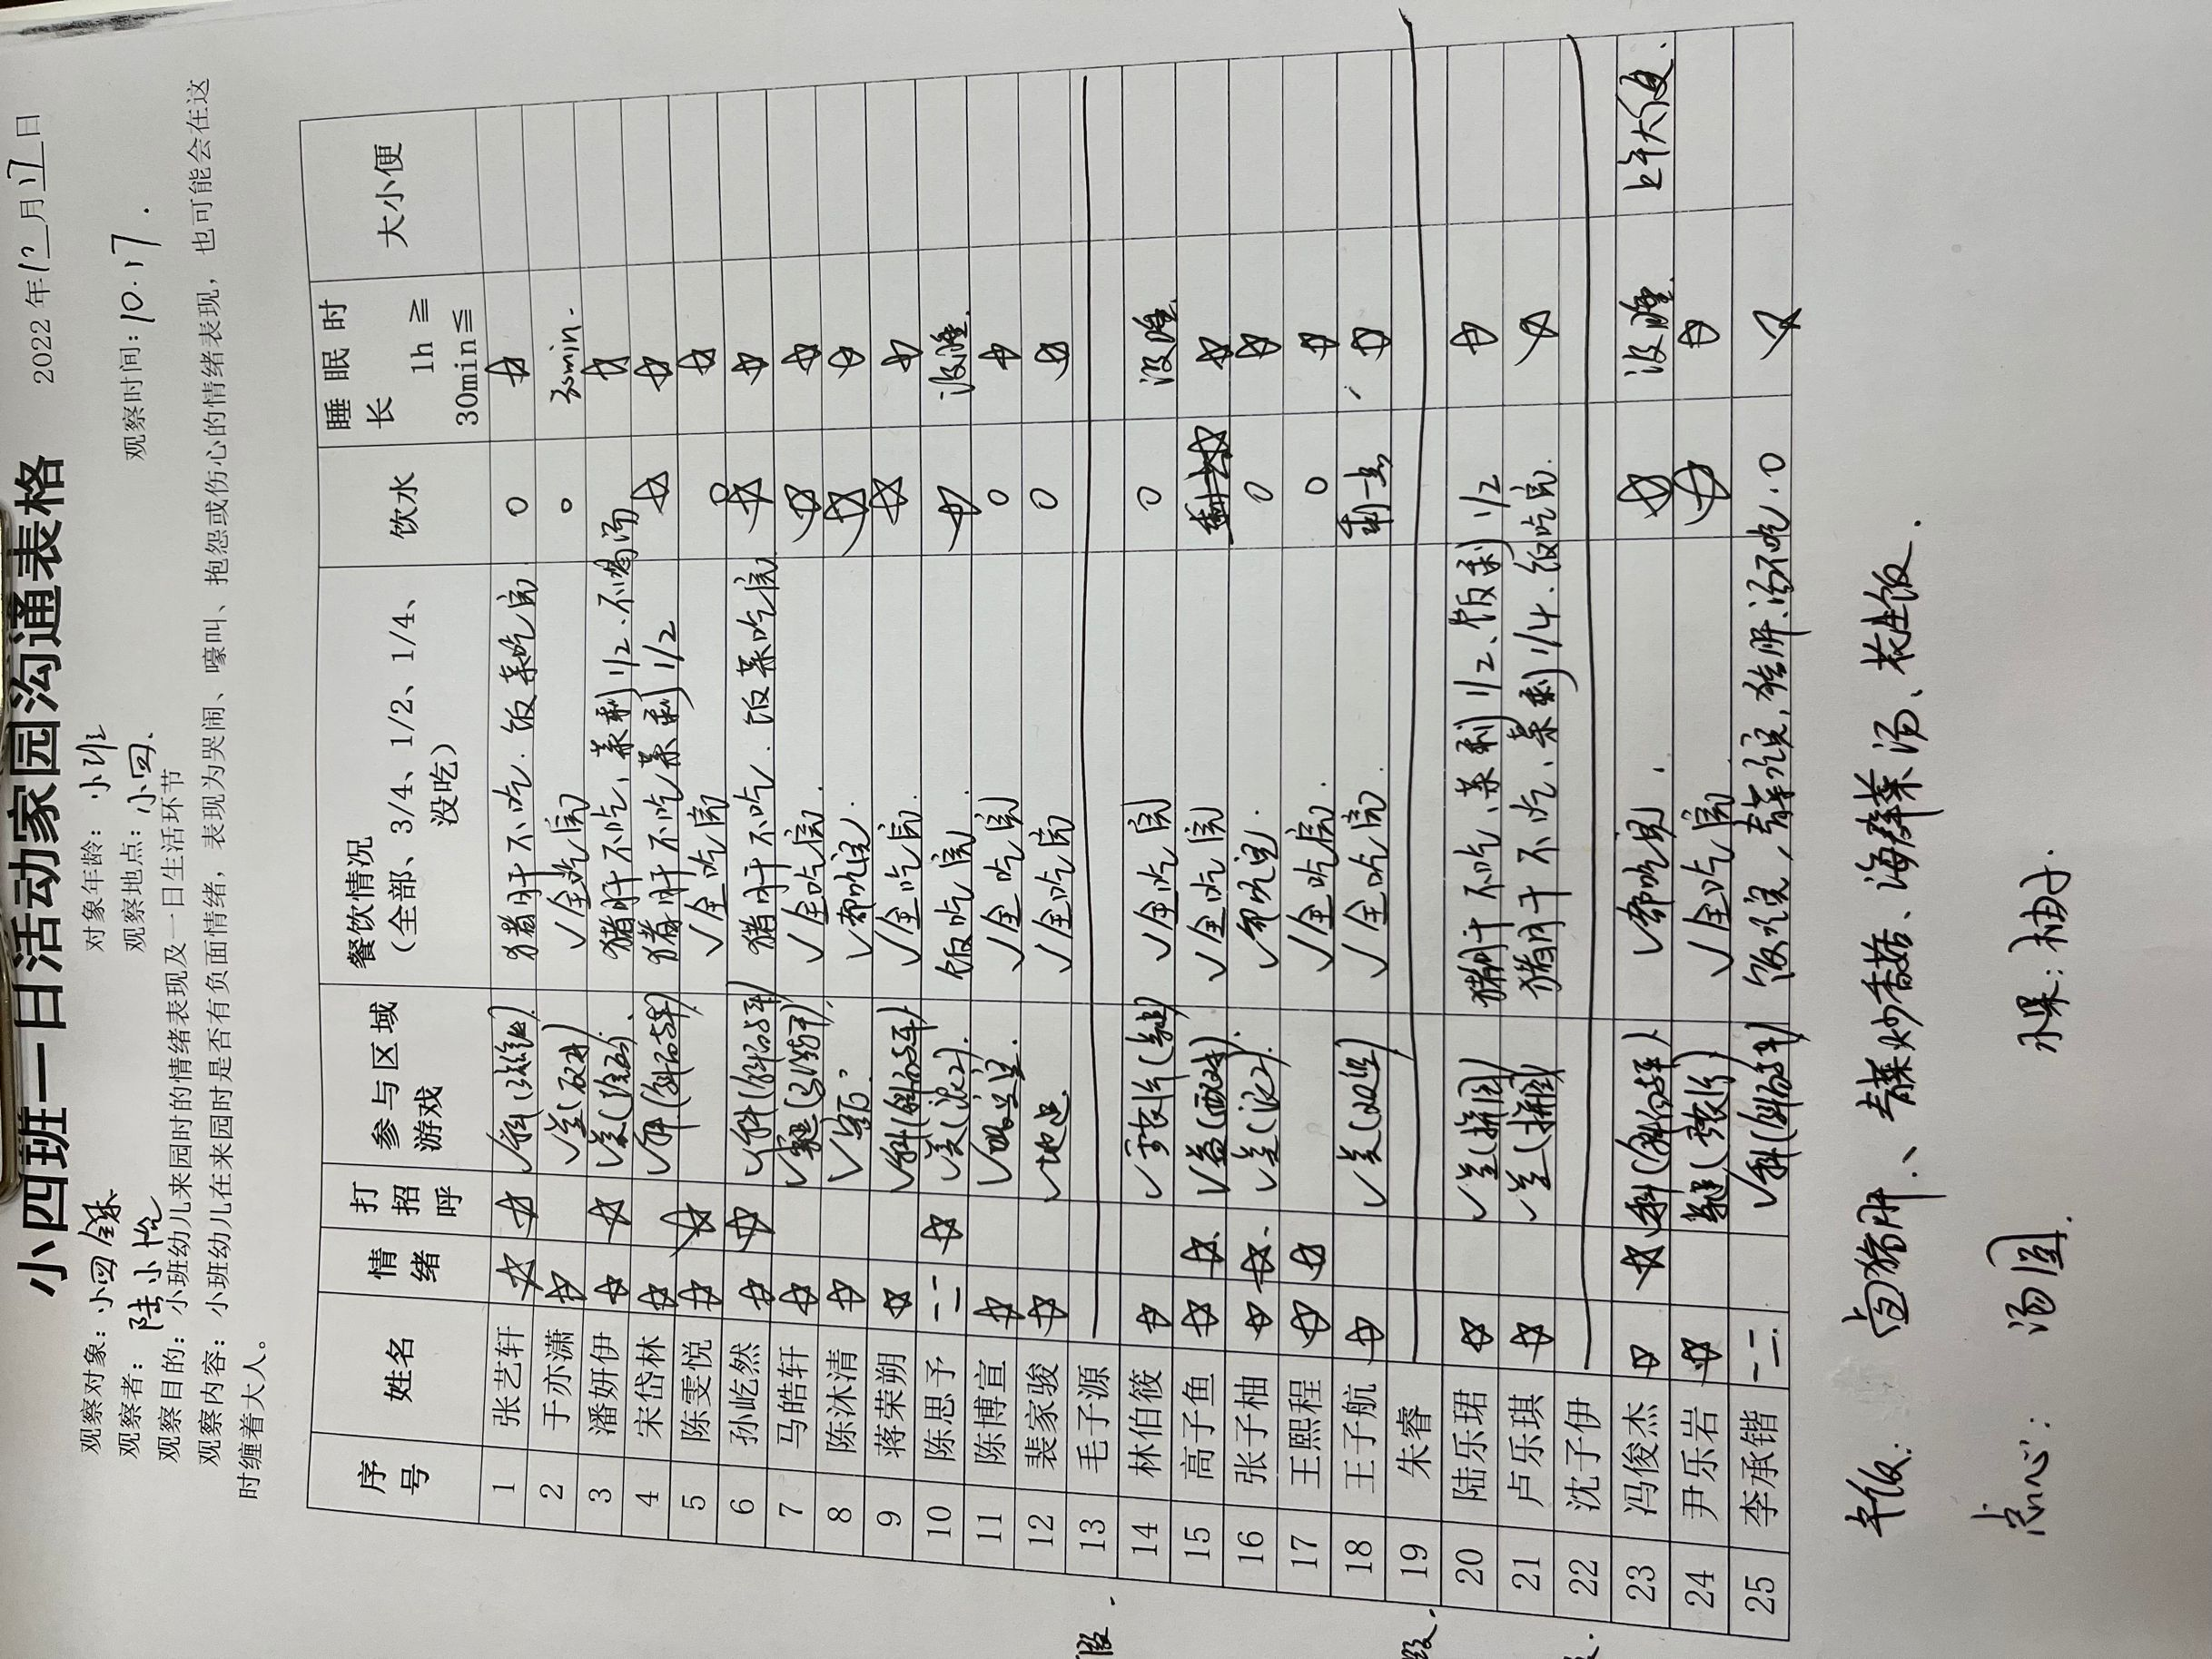 小四班一日活动家园沟通表格 2022年10月17日
观察对象:小四全体 对象年龄:小班 观察时间:10.17.
观察者:陆小怡 观察地点:小四.
观察目的:小班幼儿来园时的情绪表现及一日生活环节
观察内容:小班幼儿在来园时是否有负面情绪,表现为哭闹、嚎叫、抱怨或伤心的情绪表现,也可能会在这
时缠着大人。
序号 姓名 情绪 打招呼 参与区域游戏 餐饮情况(全部、3/4、1/2、1/4、没吃) 饮水 睡眠时长 1h≧ 30min≦ 大小便
1 张艺轩 ☆ ☆ 猪肝不吃.饭菜吃完 0 ☆
2 于亦潇 ☆ ✓全吃完 0 30min.
3 潘妍伊 ☆ ☆ 猪肝不吃、菜剩1/2.不喝汤 ☆
4 宋岱林 ☆ ✓科(斜的小车) 猪肝不吃菜剩1/2 ☆ ☆
5 陈雯悦 ☆ ☆ ✓全吃完 ☆
6 孙屹然 ☆ ☆ ✓科(斜的小车) 猪肝不吃.饭菜吃完 ☆ ☆
7 马皓轩 ☆ ✓全吃完. ☆ ☆
8 陈沐清 ☆ ✓都吃完. ☆ ☆
9 蒋荣朔 ☆ ✓科(斜的小车) ✓全吃完. ☆ ☆
10 陈思予 二 ☆ 饭吃完. ☆ 没睡.
11 陈博宣 ☆ ✓全吃完 0 ☆
12 裴家骏 ☆ ✓地垫 ✓全吃完 0 ☆
13 毛子源
14 林伯筱 ☆ ✓全吃完 0 没睡.
15 高子鱼 ☆ ☆ ✓全吃完 ☆ ☆
16 张子柚 ☆ ☆. ✓都吃完. 0 ☆
17 王熙程 ☆ ☆ ✓全吃完. 0 ☆
18 王子航 ☆ ✓全吃完. 剩一点 ☆
19 朱睿
20 陆乐珺 ☆ ✓益(拼图) 猪肝不吃、菜剩1/2、饭剩1/2 ☆
21 卢乐琪 ☆ ✓益(拼图) 猪肝不吃、菜剩1/4.饭吃完. ☆
22 沈子伊
23 冯俊杰 ☆ ☆ 科(斜的小车) ✓都吃完. ☆ 没睡. 上午大便.
24 尹乐岩 ☆ ✓全吃完 ☆ ☆
25 李承锴 二 ✓科(斜的小车) 饭吃完,青菜吃完,猪肝、汤不吃. 0 ☆
假.
假.
午饭:卤猪肝、青菜炒香菇、海鲜菜汤、花生饭.
点心:汤圆. 水果:柚子.